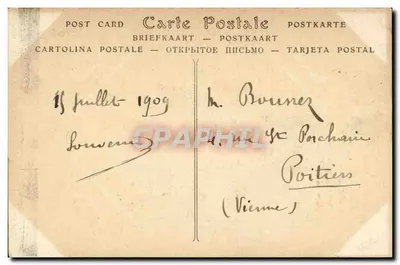 POST CARD Carte Postale POSTKARTE
BRIEFKAART — POSTKAART
CARTOLINA POSTALE — ОТКРЫТОЕ ПИСЬМО — TARJETA POSTAL
15 juillet 1909
Souvenir
M. Bounez
4, rue St Porchaire
Poitiers
(Vienne)
CPAPHIL